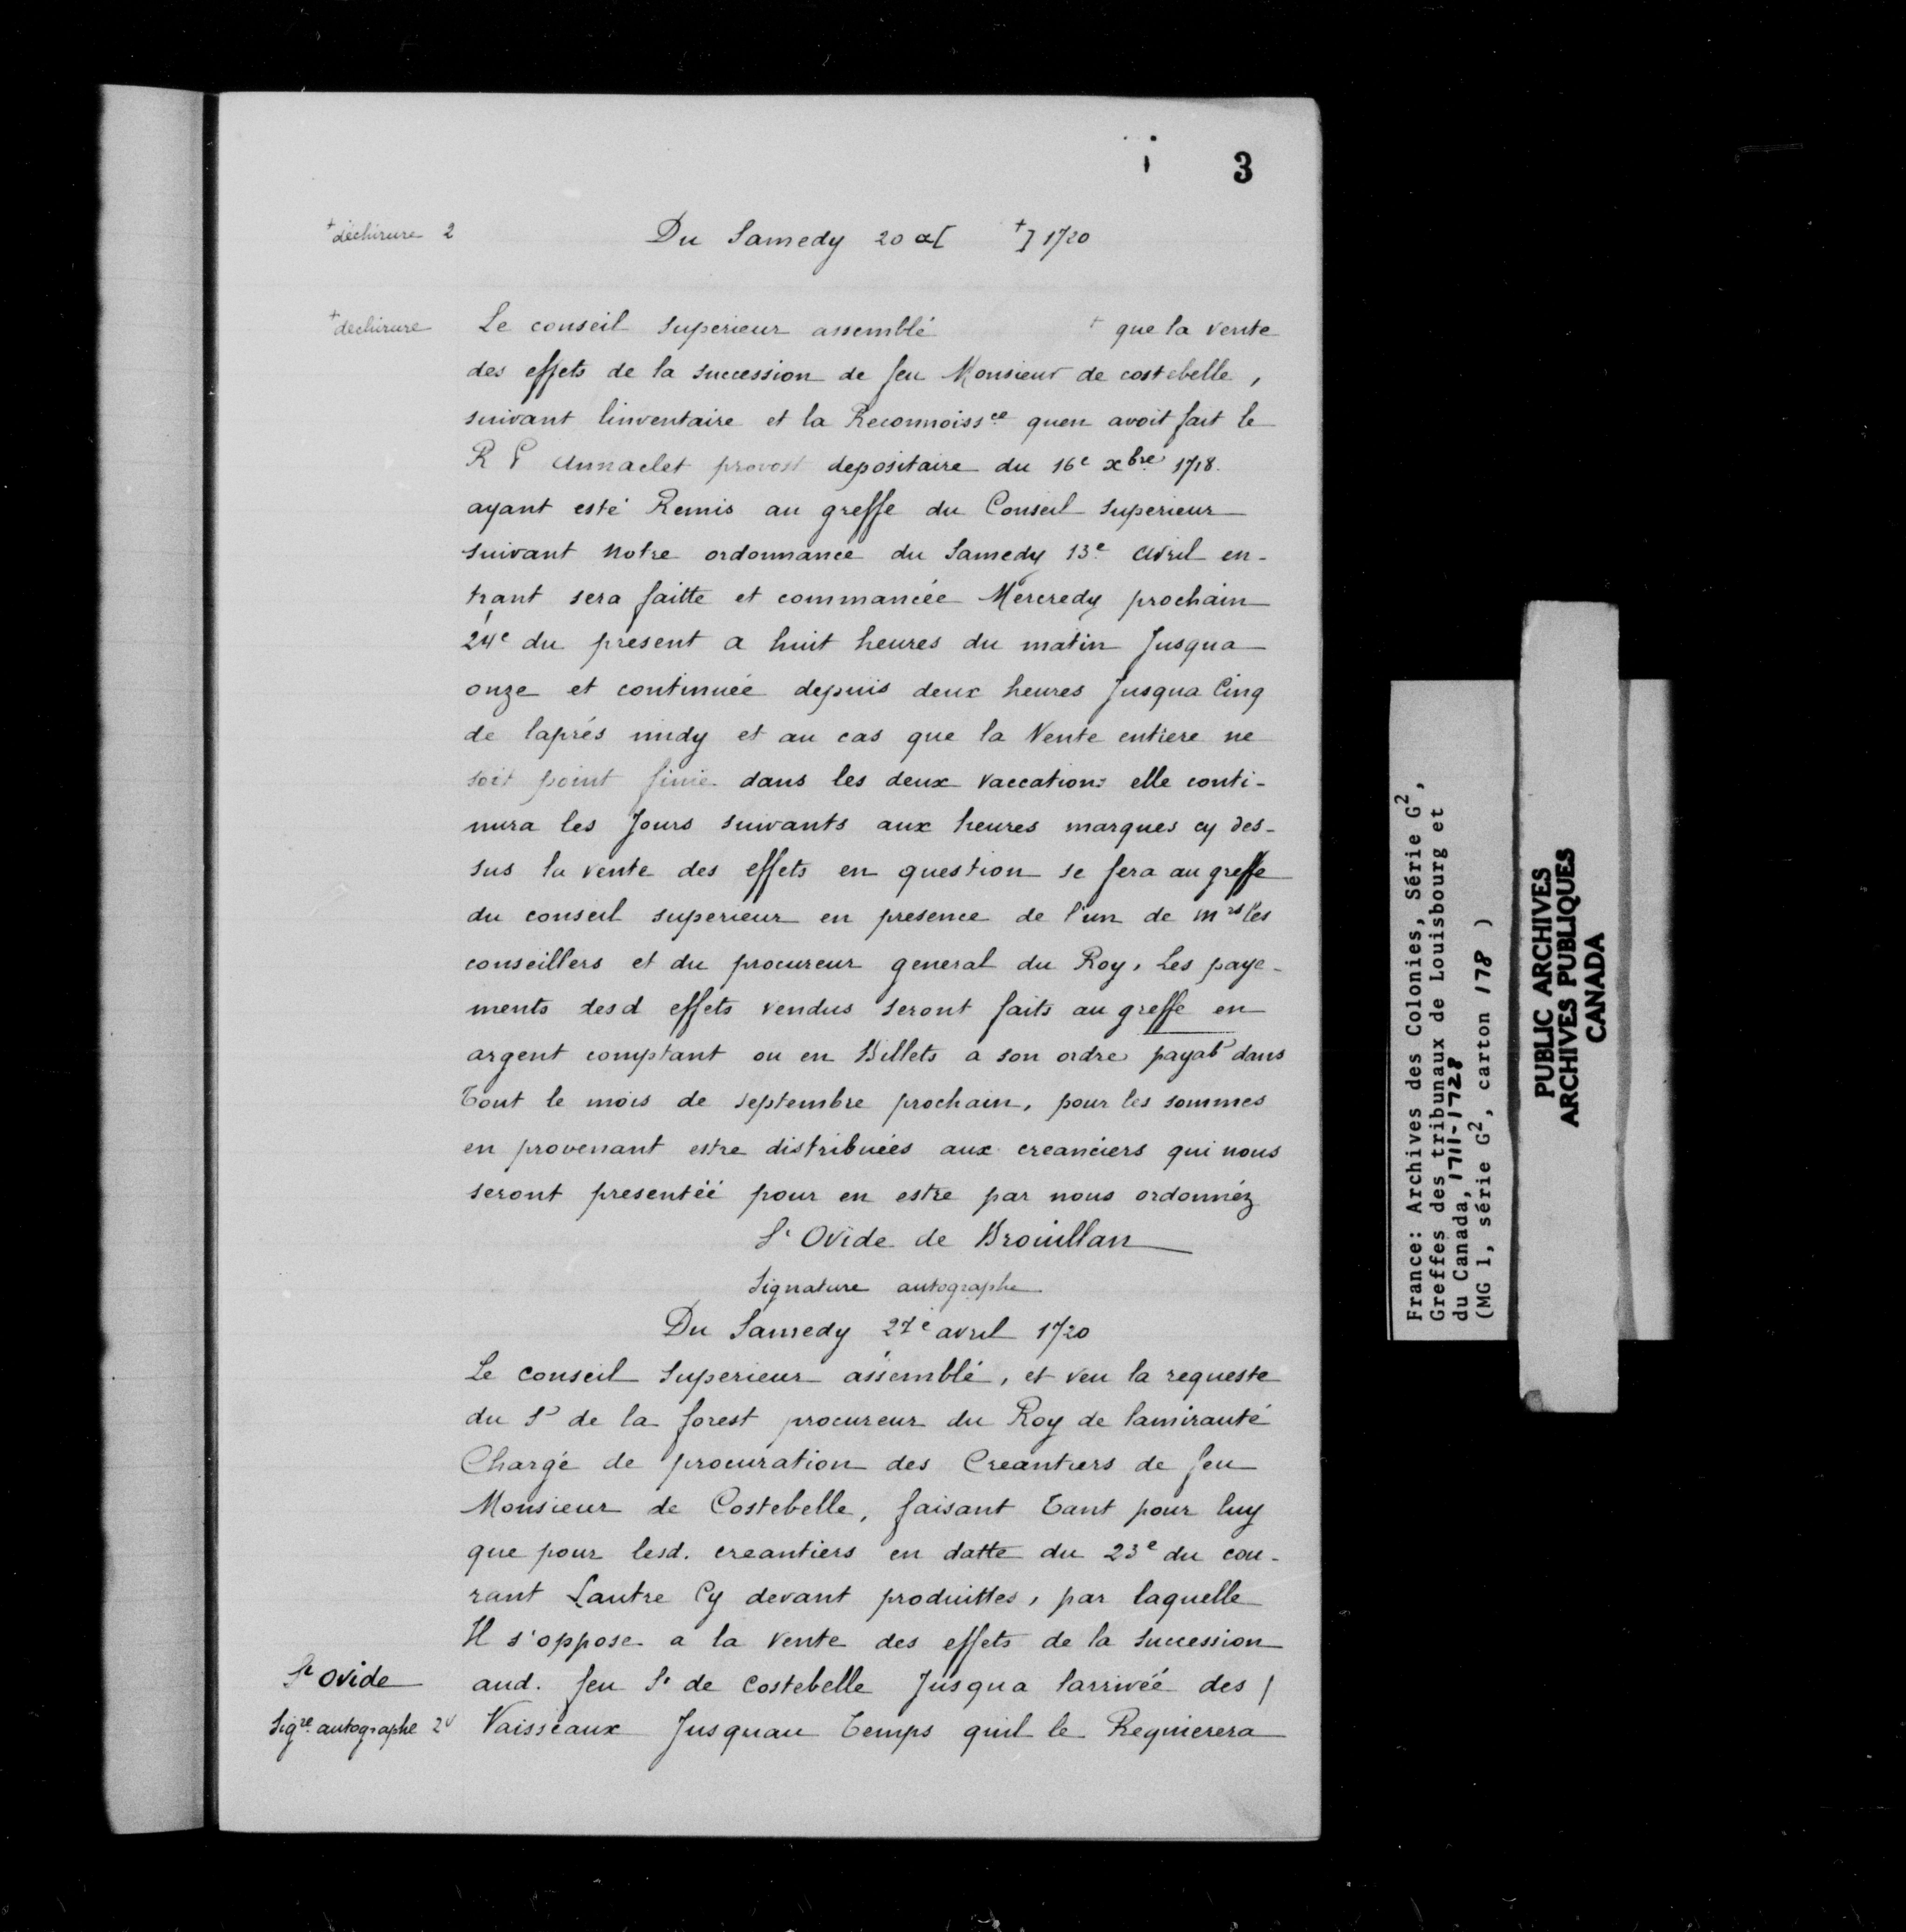 3
+ déchirure 2
Du Samedy 20 a[ +] 1720
+ dechirure
Le conseil superieur assemblé + que la vente
des effets de la succession de feu Monsieur de costebelle,
suivant linventaire et la Reconnoissce quen avoit fait le
R P Annaclet provost depositaire du 16e xbre 1718.
ayant esté Remis au greffe du Conseil superieur
suivant notre ordonnance du Samedy 13e avril en-
trant sera faitte et commancée Mercredy prochain
24e du present a huit heures du matin Jusqua
onze et continuée depuis deux heures Jusqua Cinq
de laprés midy et au cas que la Vente entiere ne
soit point finie dans les deux vaccations elle conti-
nura les Jours suivants aux heures marques cy des-
sus la vente des effets en question se fera au greffe
du conseil superieur en presence de l'un de mrs les
conseillers et du procureur general du Roy, Les paye-
ments desd effets vendus seront faits au greffe en
argent comptant ou en Billets a son ordre payab dans
Tout le mois de septembre prochain, pour les sommes
en provenant estre distribuées aux creanciers qui nous
seront presentéé pour en estre par nous ordonnéz
St Ovide de Brouillan
Signature autographe
Du Samedy 27e avril 1720
Le conseil Superieur assemblé, et veu la requeste
du Sr de la forest procureur du Roy de lamirauté
Chargé de procuration des Creantiers de feu
Monsieur de Costebelle, faisant Tant pour luy
que pour lesd. creantiers en datte du 23e du cou-
rant Lautre Cy devant produittes, par laquelle
Il s'oppose a la vente des effets de la succession
St Ovide
aud. feu Sr de Costebelle Jusqua larrivéé des /
Sigre autographe 2v
Vaisseaux Jusquau Temps quil le Requierera
France: Archives des Colonies, Série G2,
Greffes des tribunaux de Louisbourg et
du Canada, 1711-1728
(MG 1, série G2, carton 178 )
PUBLIC ARCHIVES
ARCHIVES PUBLIQUES
CANADA